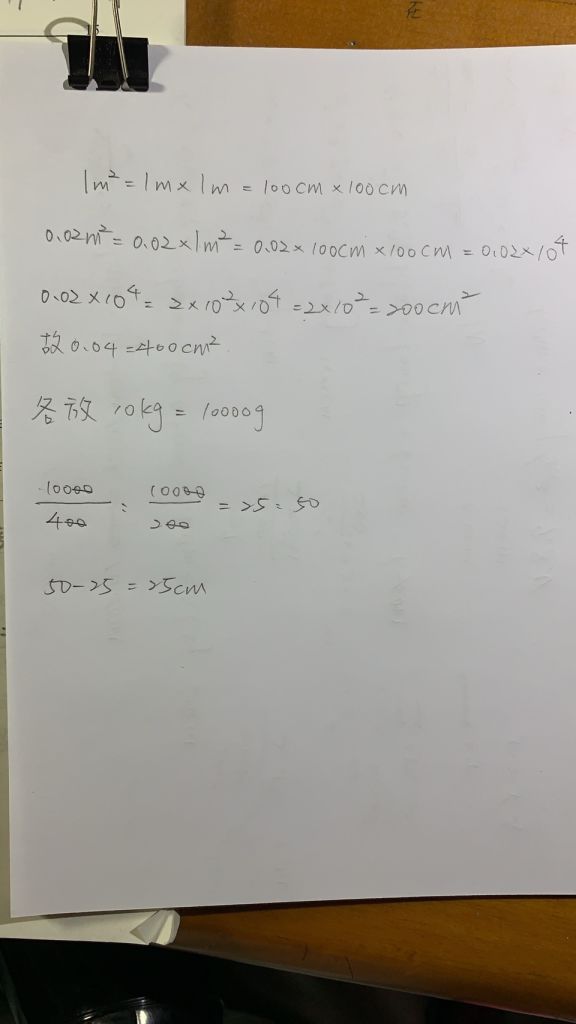 1m² = 1m × 1m = 100cm × 100cm
0.02m² = 0.02 × 1m² = 0.02 × 100cm × 100cm = 0.02×10⁴
0.02 × 10⁴ = 2 × 10⁻² × 10⁴ = 2×10² = 200cm²
故 0.04 = 400cm²
各放 10kg = 10000g
10000/400 : 10000/200 = 25 : 50
50-25 = 25cm